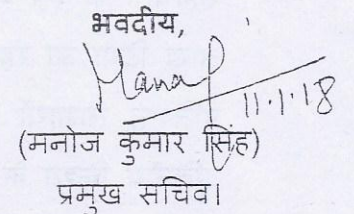 भवदीय,
11.1.18
(मनोज कुमार सिंह)
प्रमुख सचिव।